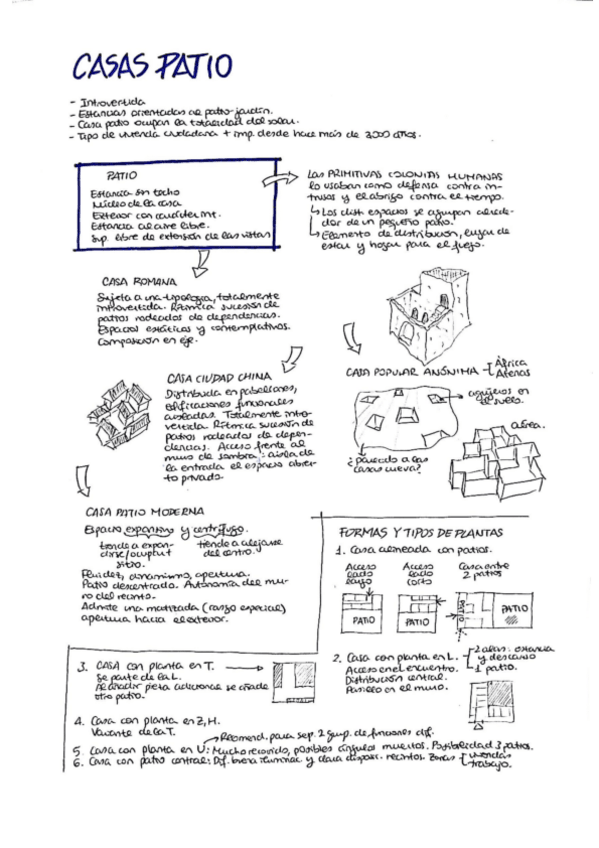 CASAS PATIO
- Introvertida
- Estancias orientadas al patio-jardín.
- Casa patio ocupan la totalidad del solar.
- Tipo de vivienda ciudadana + imp. desde hace más de 3000 años.
PATIO
Estancia sin techo
Núcleo de la casa
Exterior con carácter int.
Estancia al aire libre.
Sup. libre de extensión de las vistas
LAS PRIMITIVAS COLONIAS HUMANAS
lo usaban como defensa contra in-
trusos y el abrigo contra el tiempo.
↳ Los dist. espacios se agrupan alrede-
dor de un pequeño patio.
↳ Elemento de distribución, lugar de
estar y hogar para el fuego.
CASA ROMANA
Sujeta a una tipología, totalmente
introvertida. Rítmica sucesión de
patios rodeados de dependencias.
Espacios estáticos y contemplativos.
Composición en eje.
CASA POPULAR ANÓNIMA
África
Atenas
agujeros en
el suelo.
¿parecido a las
casas cueva?
CASA CIUDAD CHINA
Distribuida en pabellones,
edificaciones funcionales
aisladas. Totalmente intro-
vertida. Rítmica sucesión de
patios rodeados de depen-
dencias. Acceso frente al
muro de sombra: aísla de
la entrada el espacio abier-
to privado
CASA PATIO MODERNA
Espacio expansivo y centrífugo.
tiende a expan-
dirse/ocupar
sitio.
tiende a alejarse
del centro.
Fluidez, dinamismo, apertura.
Patio descentrado. Autonomía del mu-
ro del recinto.
Admite una matizada (rasgo especial)
apertura hacia el exterior.
FORMAS Y TIPOS DE PLANTAS
1. Casa alineada con patios.
Acceso
lado
largo
Acceso
lado
corto
Casa entre
2 patios
PATIO
PATIO
PATIO
PATIO
2. Casa con planta en L.
2 alas: estancia
y descanso
1 patio.
Acceso en el encuentro.
Distribución central.
Pasillo en el muro.
3. CASA con planta en T.
Se parte de la L.
Al añadir pieza adicional se añade
otro patio.
4. Casa con planta en Z, H.
Variante de la T.
Recomend. para sep. 2 grup. de funciones dif.
5. Casa con planta en U: Mucho recorrido, posibles ángulos muertos. Posibilidad 3 patios.
6. Casa con patio central: Dif. buena iluminac. y clara dispos. recintos. Zonas
viviendas
trabajo.